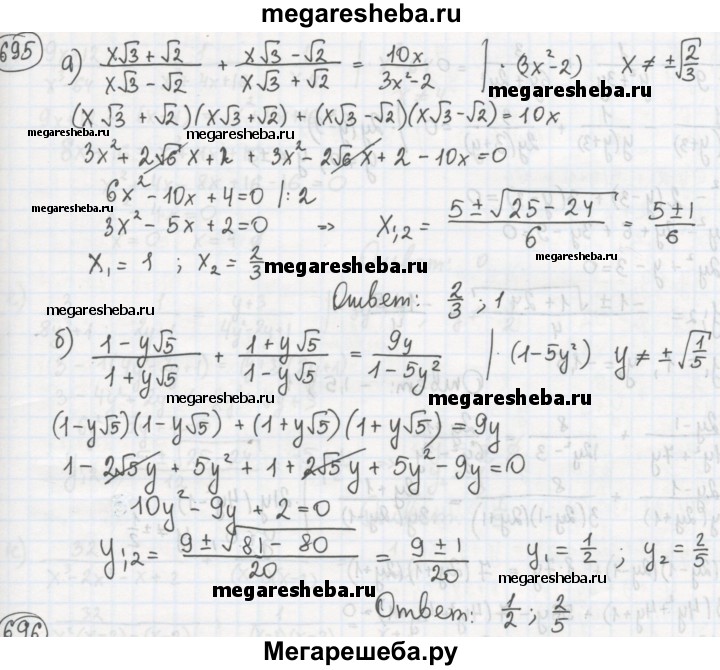 megaresheba.ru
695
а) (x√3 + √2)/(x√3 − √2) + (x√3 − √2)/(x√3 + √2) = 10x/(3x² − 2) | · (3x² − 2) x ≠ ±√(2/3)
megaresheba.ru
(x√3 + √2)(x√3 + √2) + (x√3 − √2)(x√3 − √2) = 10x
megaresheba.ru megaresheba.ru megaresheba.ru
3x² + 2√6 x + 2 + 3x² − 2√6 x + 2 − 10x = 0
6x² − 10x + 4 = 0 | : 2
megaresheba.ru
3x² − 5x + 2 = 0 ⇒ x₁,₂ = (5 ± √(25 − 24))/6 = (5 ± 1)/6
megaresheba.ru
x₁ = 1 ; x₂ = 2/3
megaresheba.ru
Ответ: 2/3 ; 1
megaresheba.ru
б) (1 − y√5)/(1 + y√5) + (1 + y√5)/(1 − y√5) = 9y/(1 − 5y²) | · (1 − 5y²) y ≠ ±√(1/5)
megaresheba.ru
(1 − y√5)(1 − y√5) + (1 + y√5)(1 + y√5) = 9y
1 − 2√5 y + 5y² + 1 + 2√5 y + 5y² − 9y = 0
10y² − 9y + 2 = 0
y₁,₂ = (9 ± √(81 − 80))/20 = (9 ± 1)/20 y₁ = 1/2 ; y₂ = 2/5
megaresheba.ru
megaresheba.ru
Ответ: 1/2 ; 2/5
696
Мегарешеба.ру